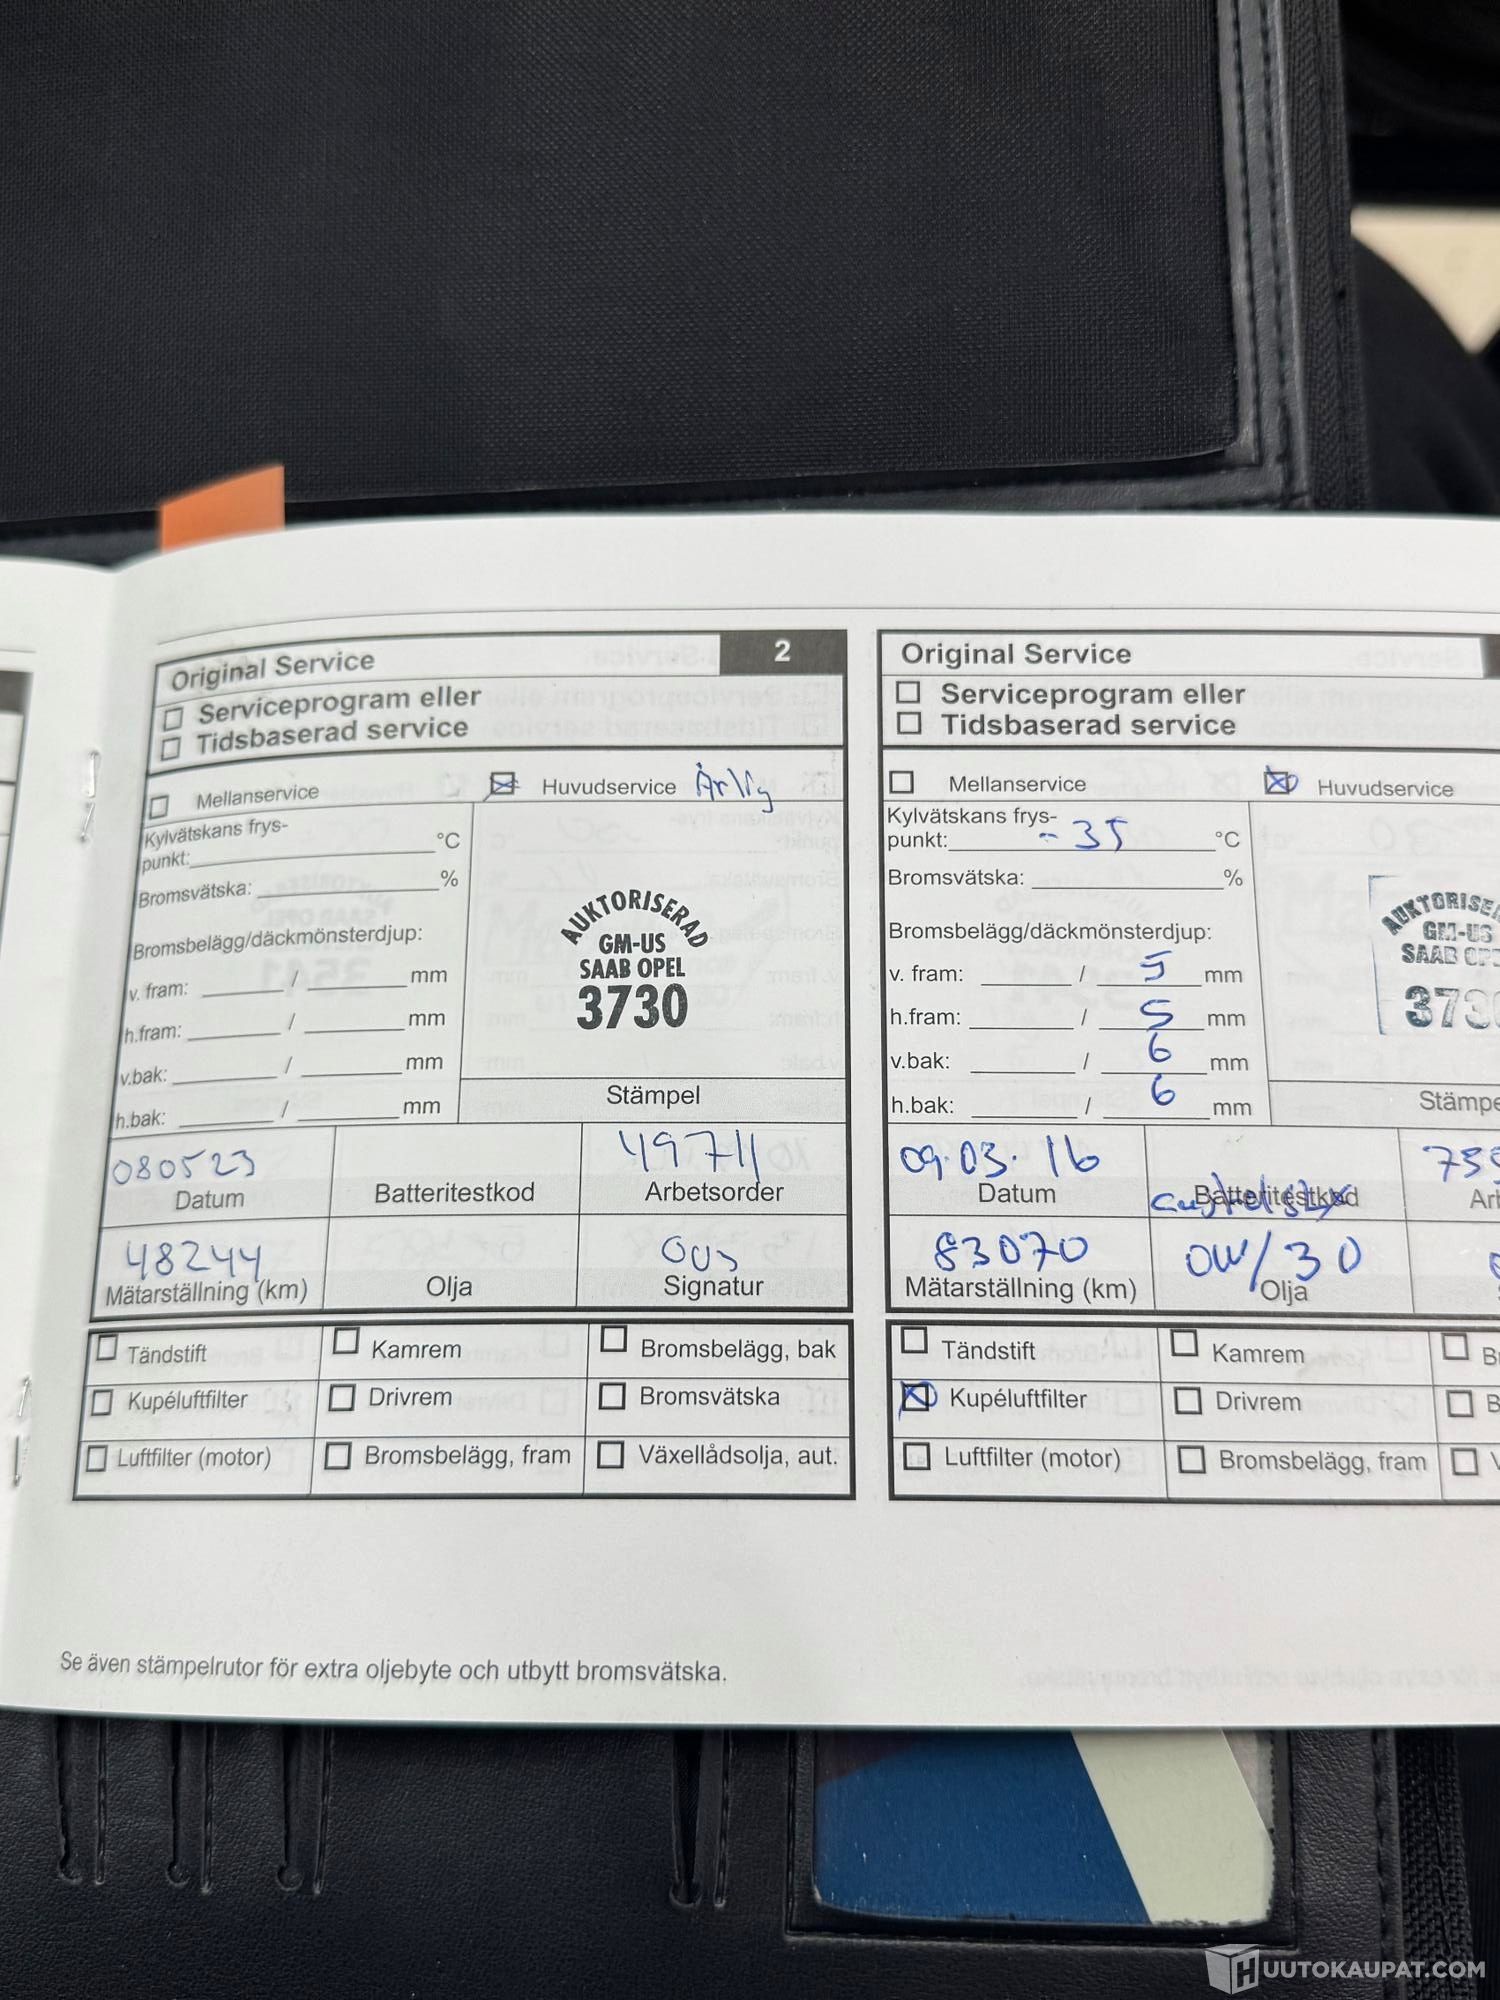 Original Service 2
Serviceprogram eller
Tidsbaserad service
Mellanservice Huvudservice Årlig
Kylvätskans frys-
punkt: °C
Bromsvätska: %
Bromsbelägg/däckmönsterdjup:
v. fram: / mm
h.fram: / mm
v.bak: / mm
h.bak: / mm
AUKTORISERAD
GM-US
SAAB OPEL
3730
Stämpel
080523 49711
Datum Batteritestkod Arbetsorder
48244
Mätarställning (km) Olja Signatur
Tändstift Kamrem Bromsbelägg, bak
Kupéluftfilter Drivrem Bromsvätska
Luftfilter (motor) Bromsbelägg, fram Växellådsolja, aut.
Se även stämpelrutor för extra oljebyte och utbytt bromsvätska.
Original Service
Serviceprogram eller
Tidsbaserad service
Mellanservice Huvudservice
Kylvätskans frys-
punkt: -35 °C
Bromsvätska: %
Bromsbelägg/däckmönsterdjup:
v. fram: / 5 mm
h.fram: / 5 mm
v.bak: / 6 mm
h.bak: / 6 mm
AUKTORISE
GM-US
SAAB OP
373
Stämpe
09.03.16
Datum Batteritestkod Ar
83070 0W/30
Mätarställning (km) Olja
Tändstift Kamrem B
Kupéluftfilter Drivrem B
Luftfilter (motor) Bromsbelägg, fram V
HUUTOKAUPAT.COM